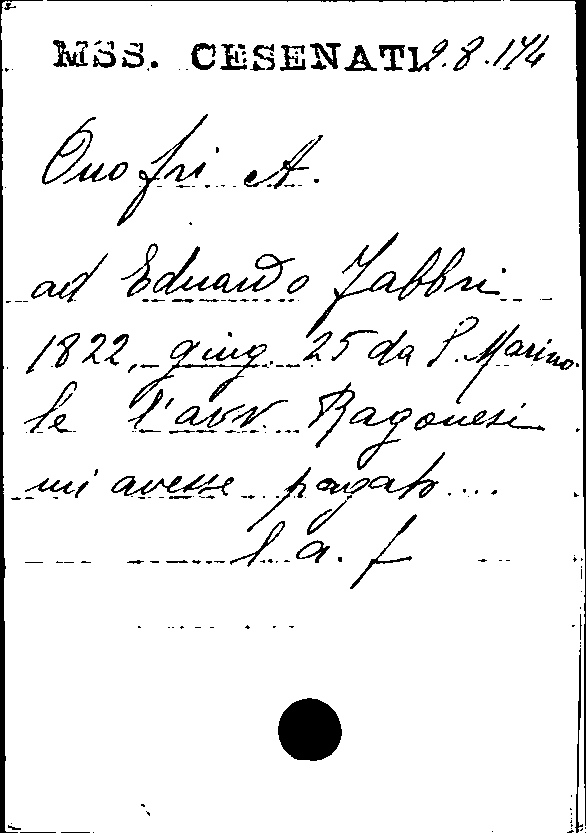 MSS. CESENATI 9.8.176
Onofri A.
ad Eduardo Fabbri
1822, giug. 25 da S. Marino.
Se l'avv. Ragonesi
mi avesse pagato....
l. a. f